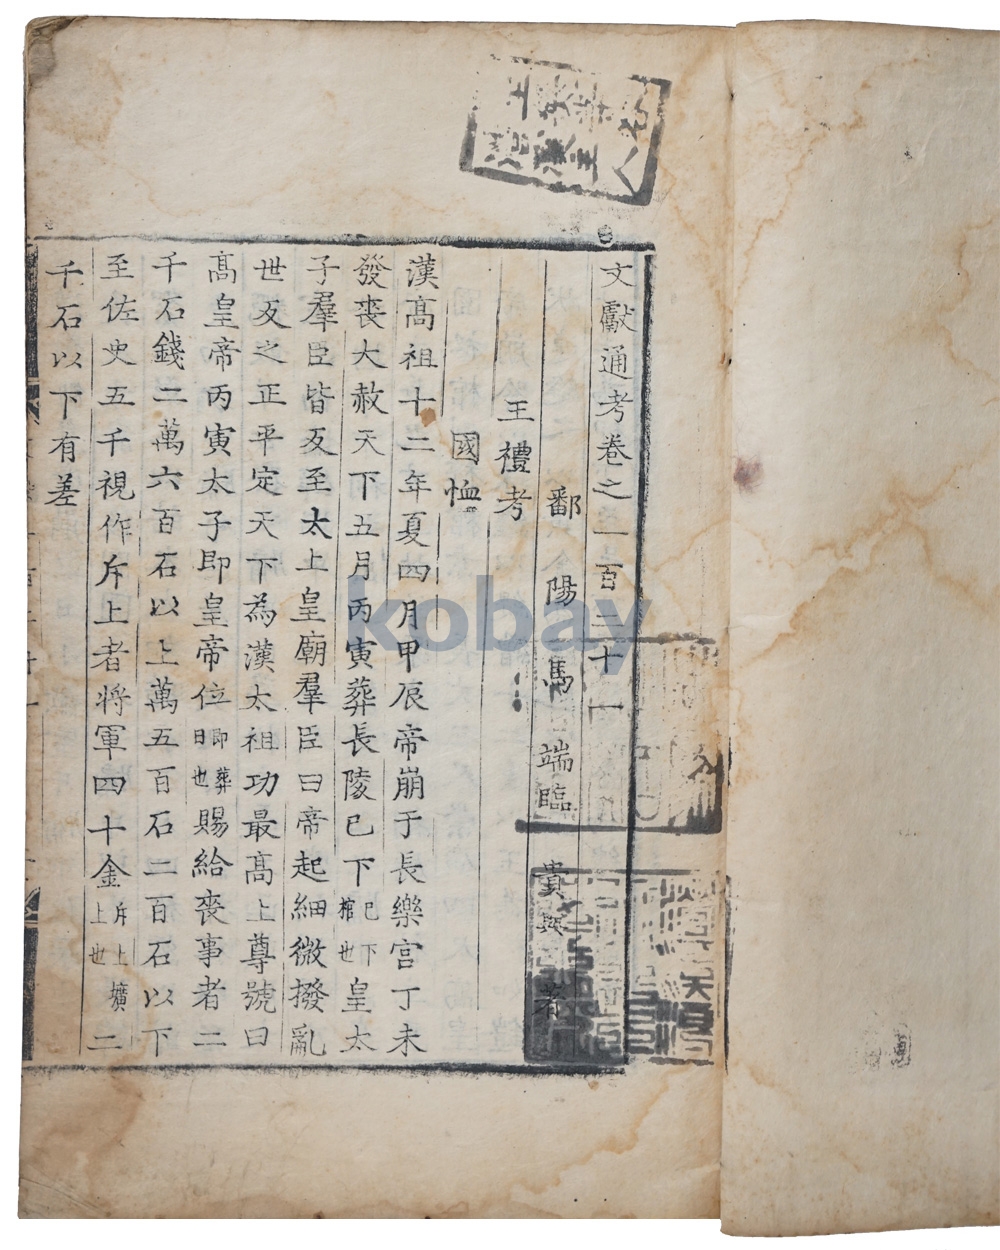 文獻通考卷之一百二十一
鄱陽馬端臨貴與著
王禮考
國恤
漢高祖十二年夏四月甲辰帝崩于長樂宮丁未
發喪大赦天下五月丙寅葬長陵已下已下棺也皇太
子羣臣皆反至太上皇廟羣臣曰帝起細微撥亂
世反之正平定天下為漢太祖功最高上尊號曰
高皇帝丙寅太子即皇帝位即葬日也賜給喪事者二
千石錢二萬六百石以上萬五百石二百石以下
至佐史五千視作斥上者將軍四十金斥上壙上也二
千石以下有差
kobay